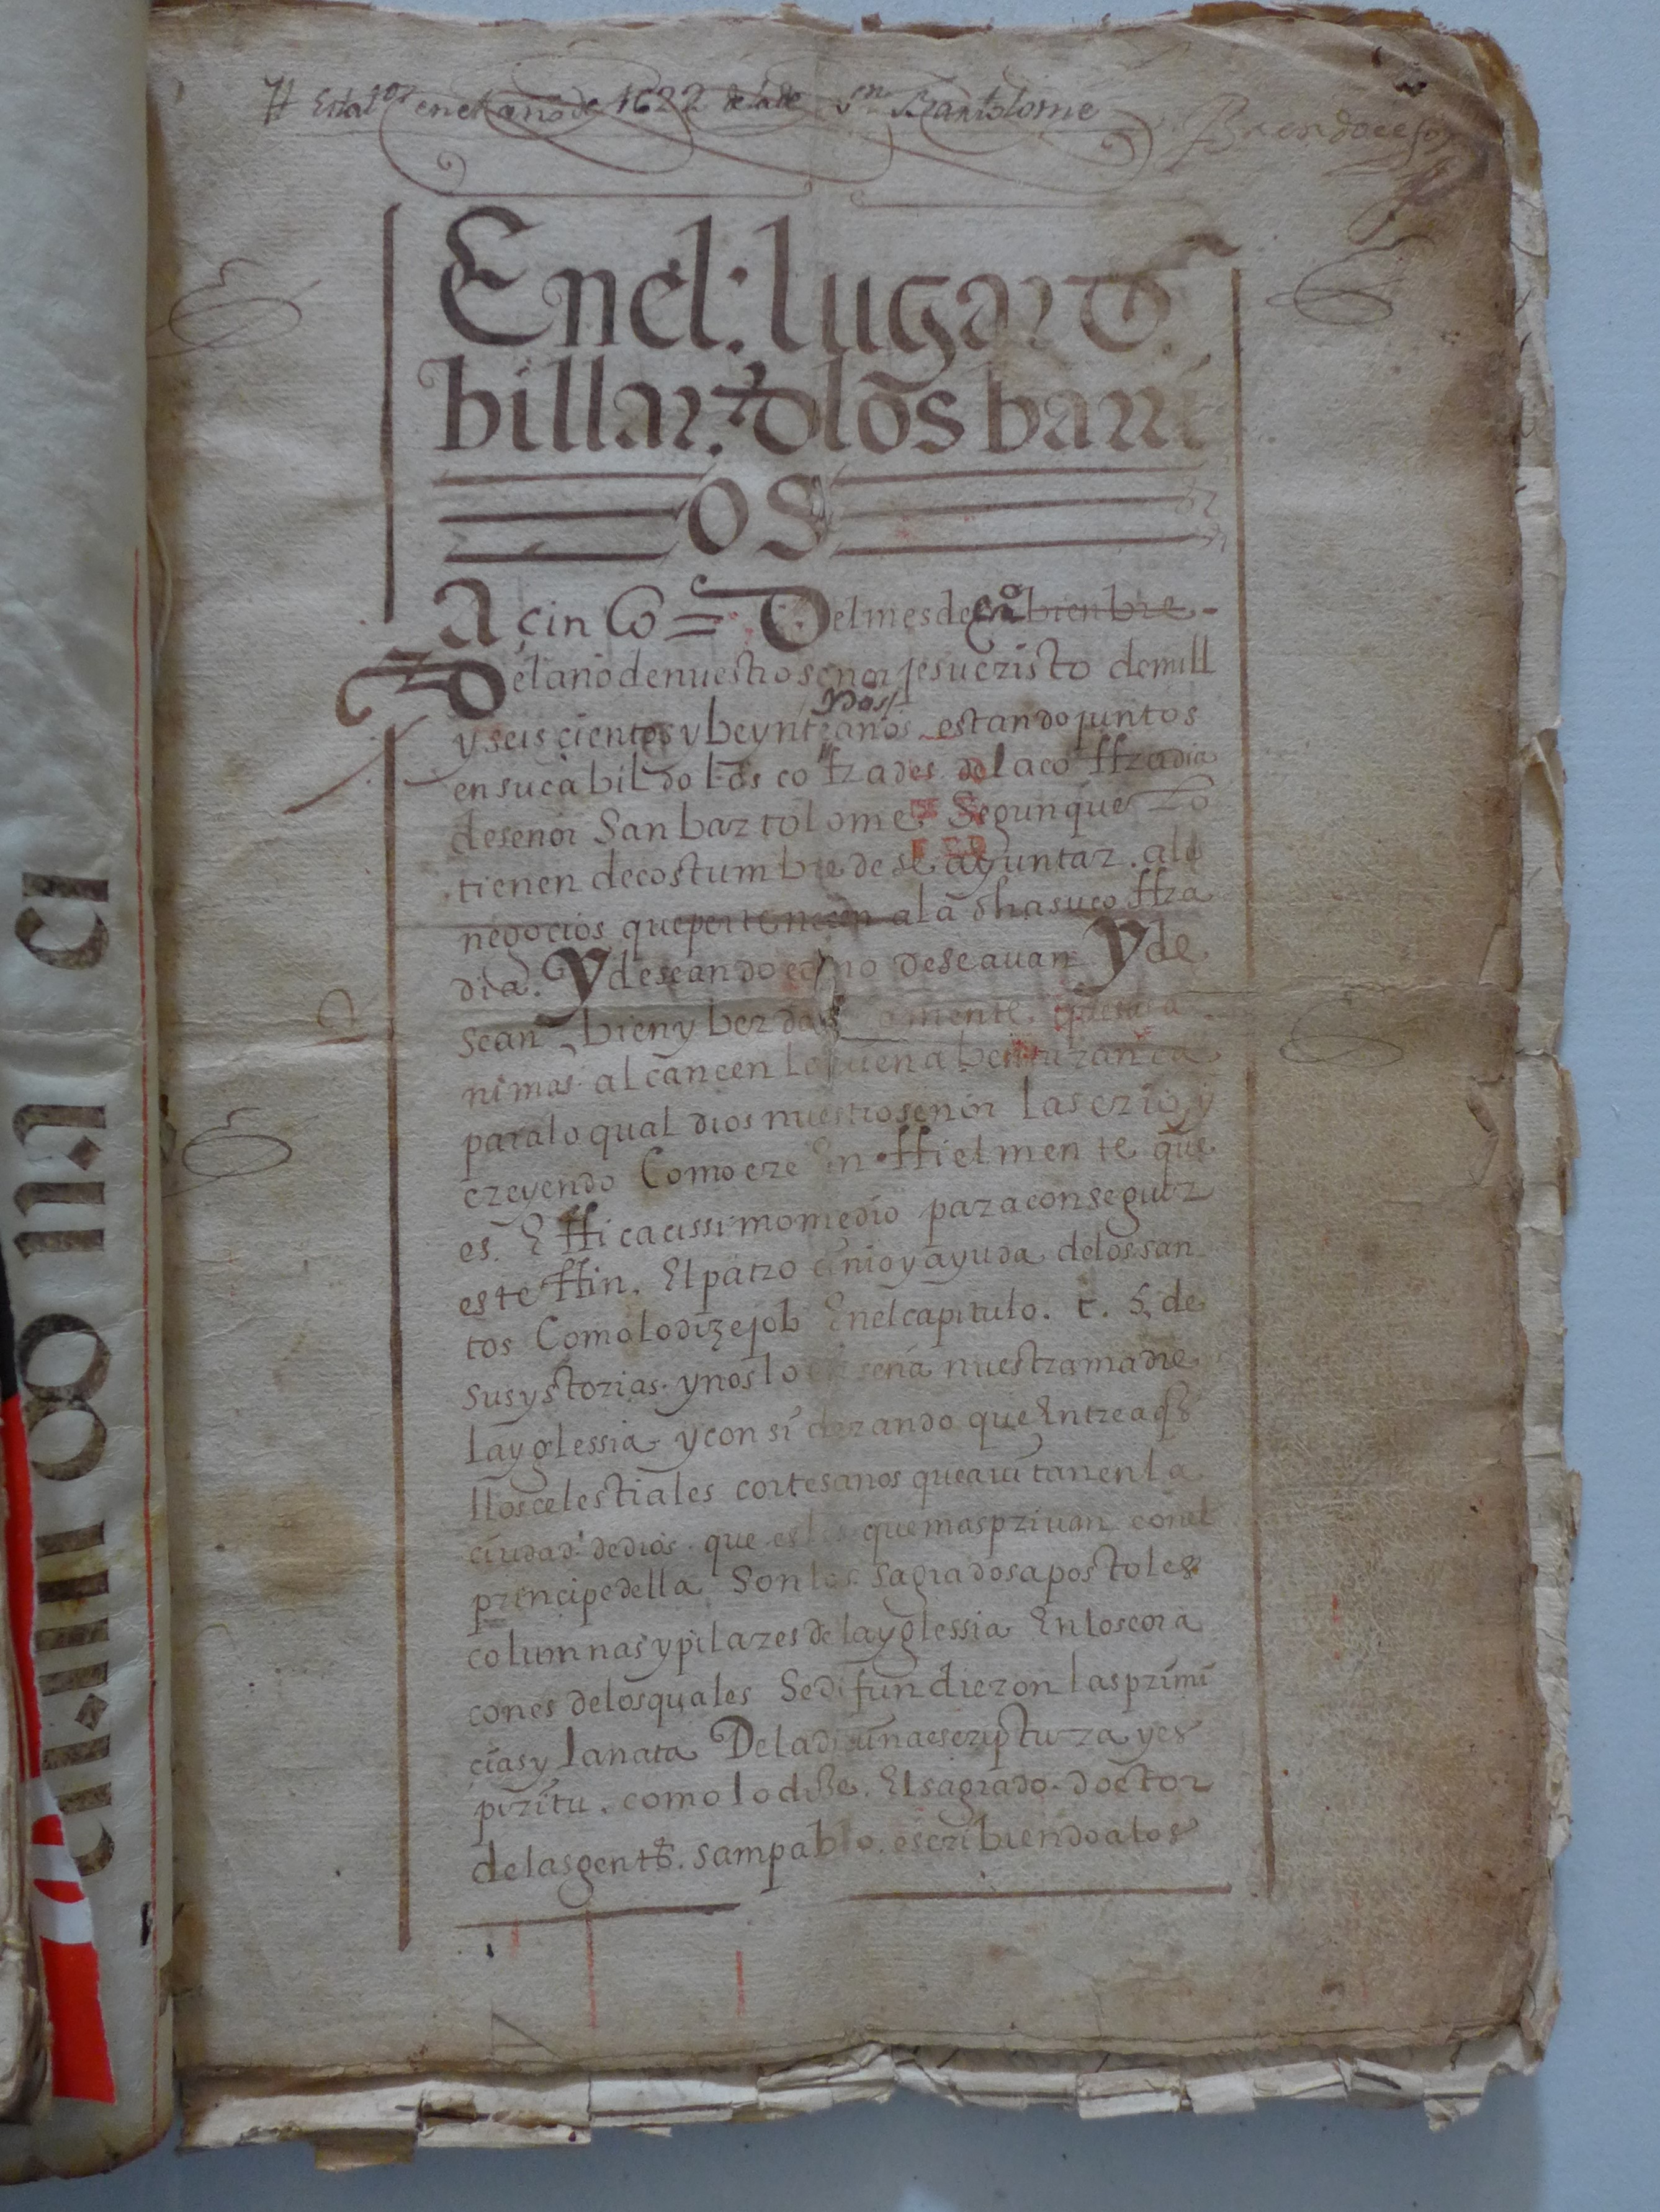 en el año de 1622 de la de Sn Bartolome
Enel: lugar de
billar: d los barri
os
A cinco = Del mes de en.o bienbre -
Del año de nuestro señor jesucristo de mill
ydos
y seis cientos y beynte años estando juntos
en su cabildo los coffrades de la coffradia
de señor San bartolome Segun que lo
tienen de costumbre de se ayuntar. a los
negocios que pertenecen a la dha su coffra
dia. Y deseando como deseauan Y de
sean bien y berda mente. que sus a
nimas alcancen la buena benturança
para lo qual dios nuestro señor las crio y
creyendo Como creen ffielmente que
es Efficacissimo medio para conseguir
este ffin. El patrocinio y ayuda de los san
tos Como lo dize job Enel capitulo. c. 5. de
sus ystorias. y nos lo enseña nuestra madre
la yglessia y considerando que Entre aque
llos celestiales cortesanos que auitan en la
ciudad de dios que es los que mas priuan con el
principe della Son los sagrados apostoles
columnas y pilares de la yglessia En los cora
cones de los quales Se difundieron las primi
cias y la nata De la diuina escriptura y es
piritu. como lo disse. El sagrado doctor
de las gentes. sam pablo. escribiendo a los